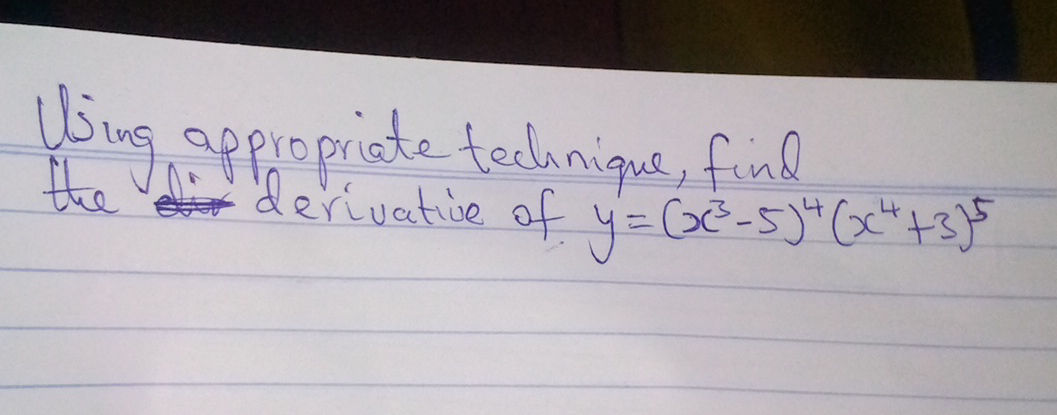 Using appropriate technique, find
the derivative of y = (x³-5)⁴(x⁴+3)⁵